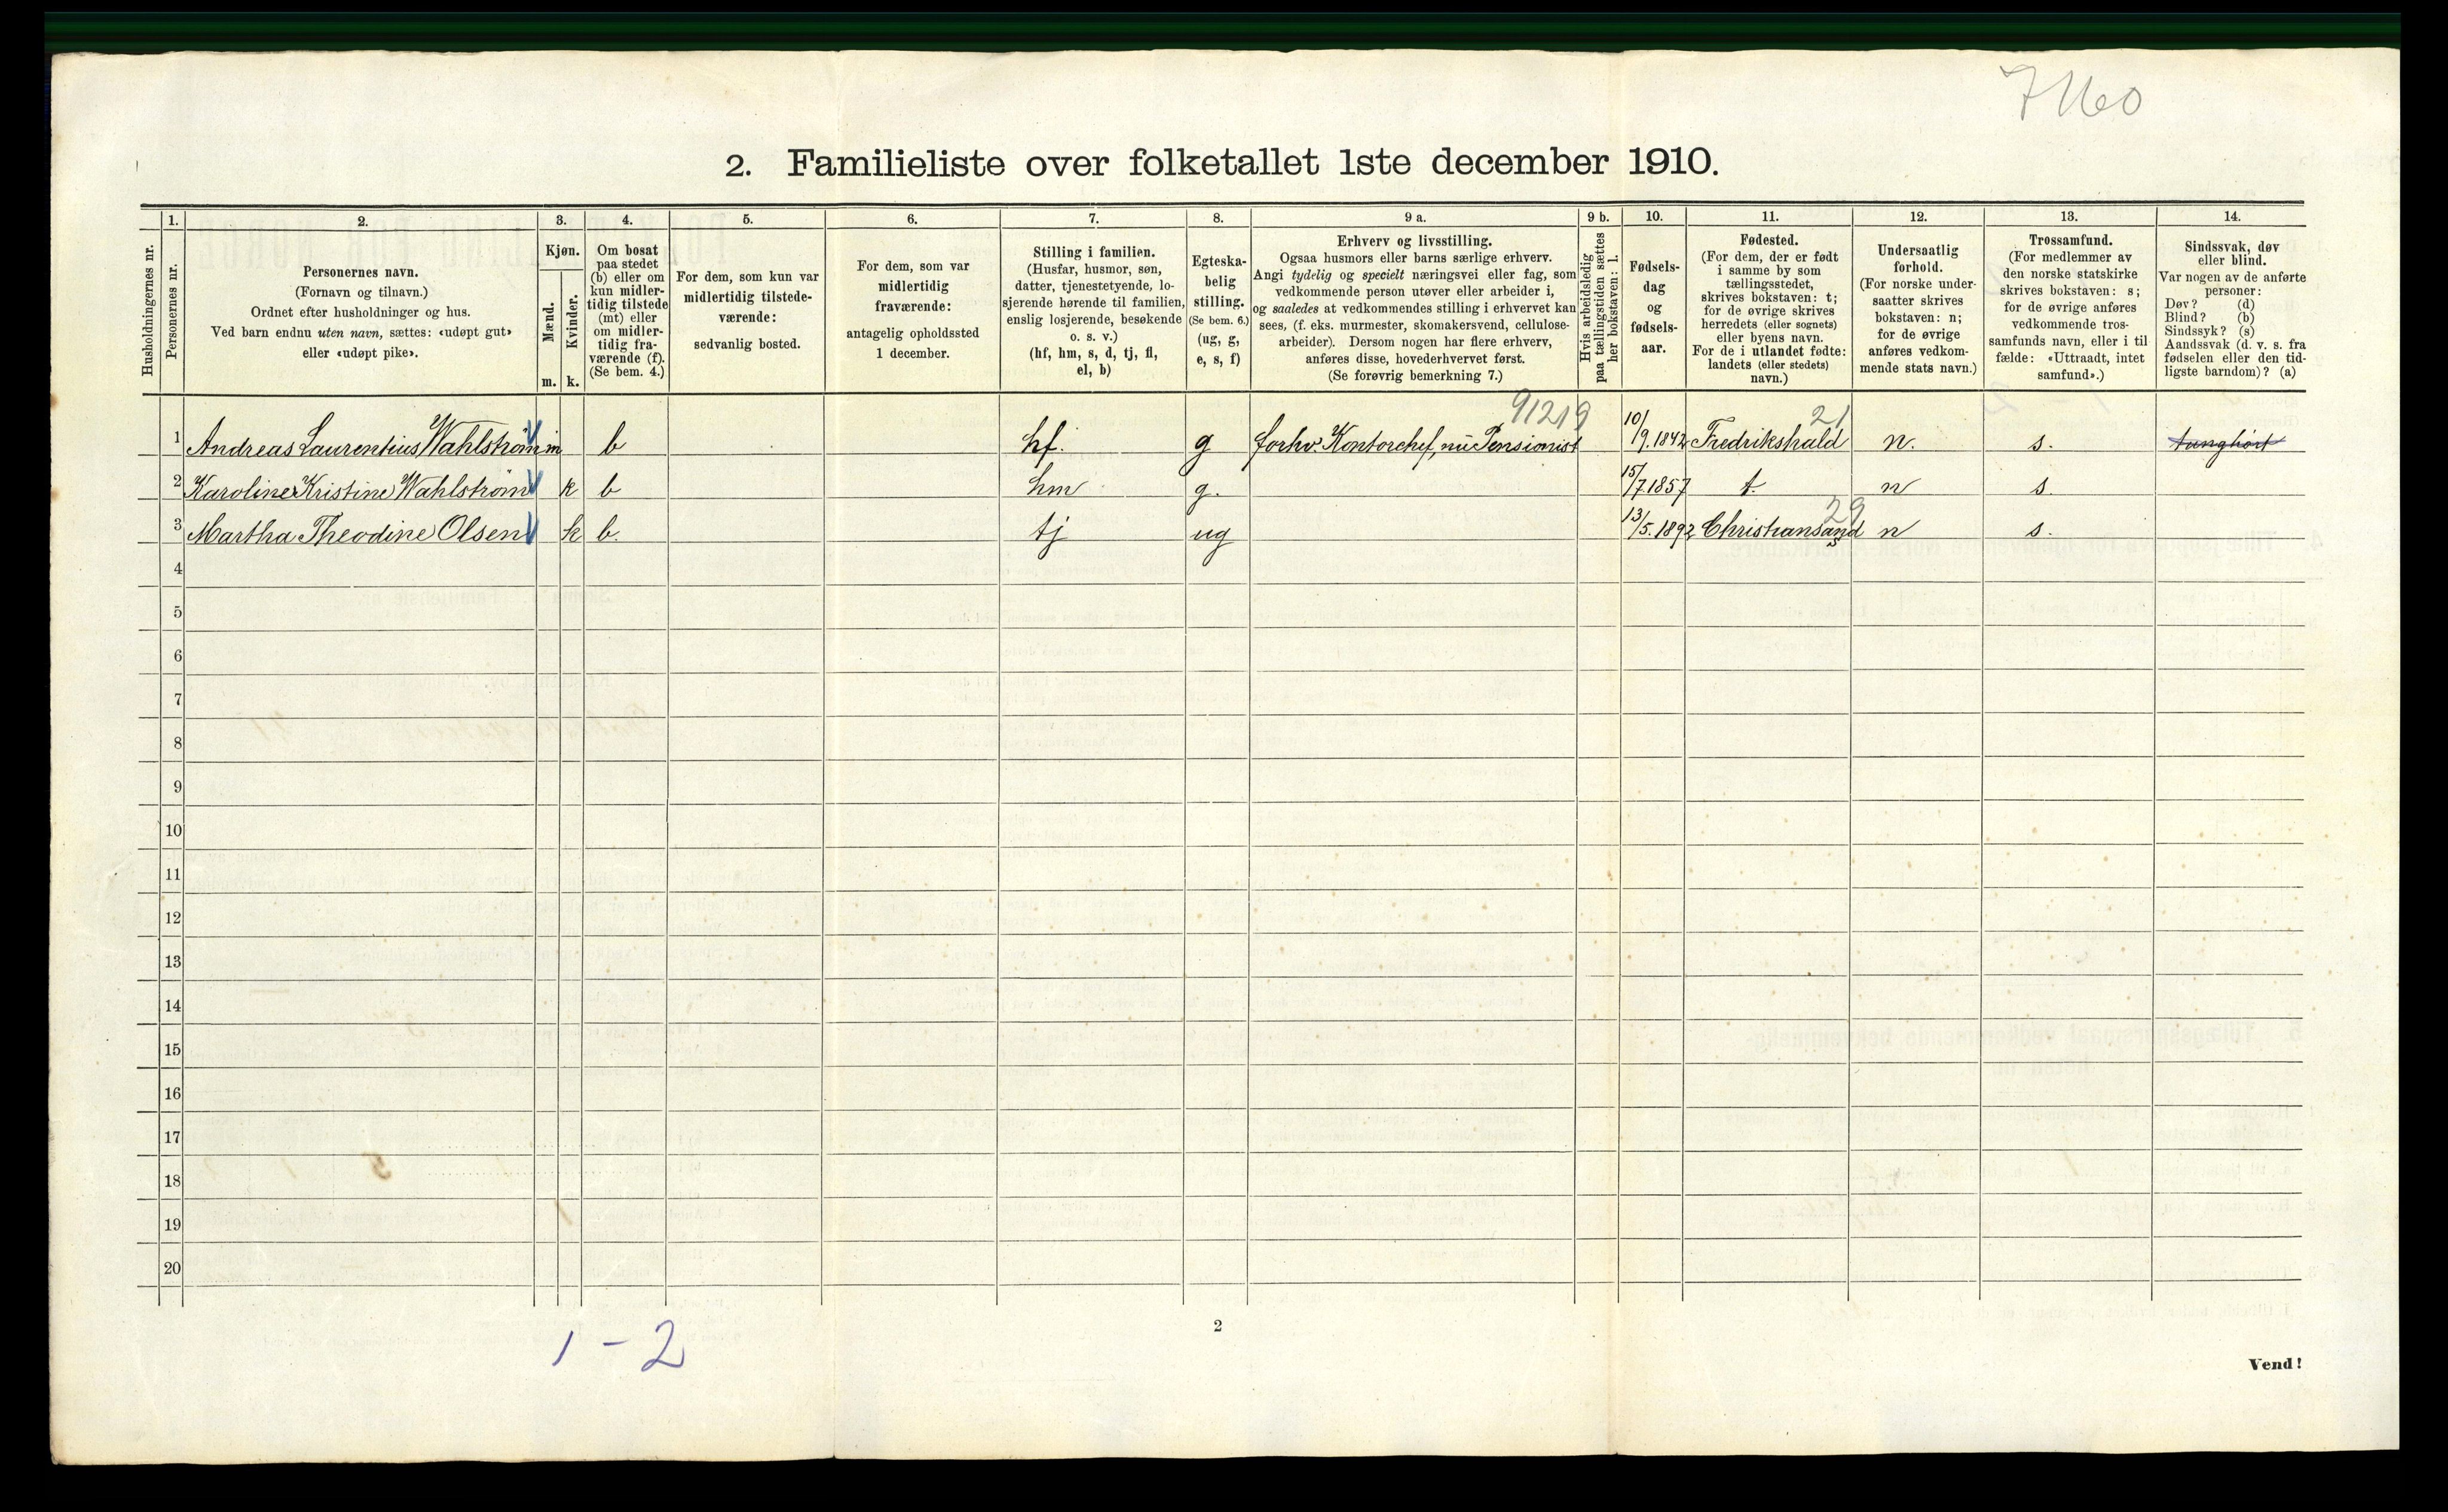 7160
2. Familieliste over folketallet 1ste december 1910.
Husholdningernes nr.
1.
Personernes nr.
2.
Personernes navn.
(Fornavn og tilnavn.)
Ordnet efter husholdninger og hus.
Ved barn endnu uten navn, sættes: «udøpt gut»
eller «udøpt pike».
3.
Kjøn.
Mænd.
Kvinder.
m. k.
4.
Om bosat
paa stedet
(b) eller om
kun midler-
tidig tilstede
(mt) eller
om midler-
tidig fra-
værende (f).
(Se bem. 4.)
5.
For dem, som kun var
midlertidig tilstede-
værende:
sedvanlig bosted.
6.
For dem, som var
midlertidig
fraværende:
antagelig opholdssted
1 december.
7.
Stilling i familien.
(Husfar, husmor, søn,
datter, tjenestetyende, lo-
sjerende hørende til familien,
enslig losjerende, besøkende
o. s. v.)
(hf, hm, s, d, tj, fl,
el, b)
8.
Egteska-
belig
stilling.
(Se bem. 6.)
(ug, g,
e, s, f)
9 a.
Erhverv og livsstilling.
Ogsaa husmors eller barns særlige erhverv.
Angi tydelig og specielt næringsvei eller fag, som
vedkommende person utøver eller arbeider i,
og saaledes at vedkommendes stilling i erhvervet kan
sees, (f. eks. murmester, skomakersvend, cellulose-
arbeider). Dersom nogen har flere erhverv,
anføres disse, hovederhvervet først.
(Se forøvrig bemerkning 7.)
9 b.
Hvis arbeidsledig
paa tællingstiden sættes
her bokstaven: l.
10.
Fødsels-
dag
og
fødsels-
aar.
11.
Fødested.
(For dem, der er født
i samme by som
tællingsstedet,
skrives bokstaven: t;
for de øvrige skrives
herredets (eller sognets)
eller byens navn.
For de i utlandet fødte:
landets (eller stedets)
navn.)
12.
Undersaatlig
forhold.
(For norske under-
saatter skrives
bokstaven: n;
for de øvrige
anføres vedkom-
mende stats navn.)
13.
Trossamfund.
(For medlemmer av
den norske statskirke
skrives bokstaven: s;
for de øvrige anføres
vedkommende tros-
samfunds navn, eller i til
fælde: «Uttraadt, intet
samfund».)
14.
Sindssvak, døv
eller blind.
Var nogen av de anførte
personer:
Døv? (d)
Blind? (b)
Sindssyk? (s)
Aandssvak (d. v. s. fra
fødselen eller den tid-
ligste barndom)? (a)
91219 21
1 Andreas Laurentius Wahlström m b hf. g forhv. Kontorchef, nu Pensionist 10/9.1842 Fredrikshald n. s. tunghört
2 Karoline Kristine Wahlström k b hm g. 15/7.1857 t. n s.
29
3 Martha Theodine Olsen k b. tj ug 13/5.1892 Christianssand n s.
4
5
6
7
8
9
10
11
12
13
14
15
16
17
18
19
20
1 - 2
2
Vend!